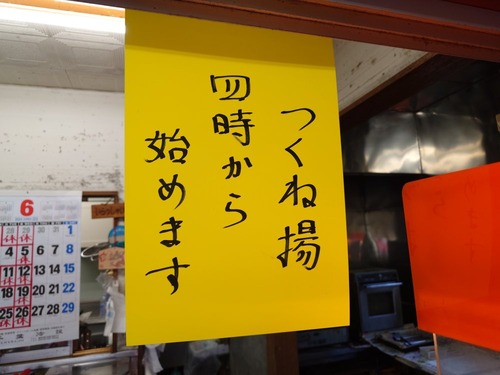 つくね揚
四時から
始めます
6
1
4 5 6 7 8
11 12 13 14 15
18 19 20 21 22
25 26 27 28 29
休